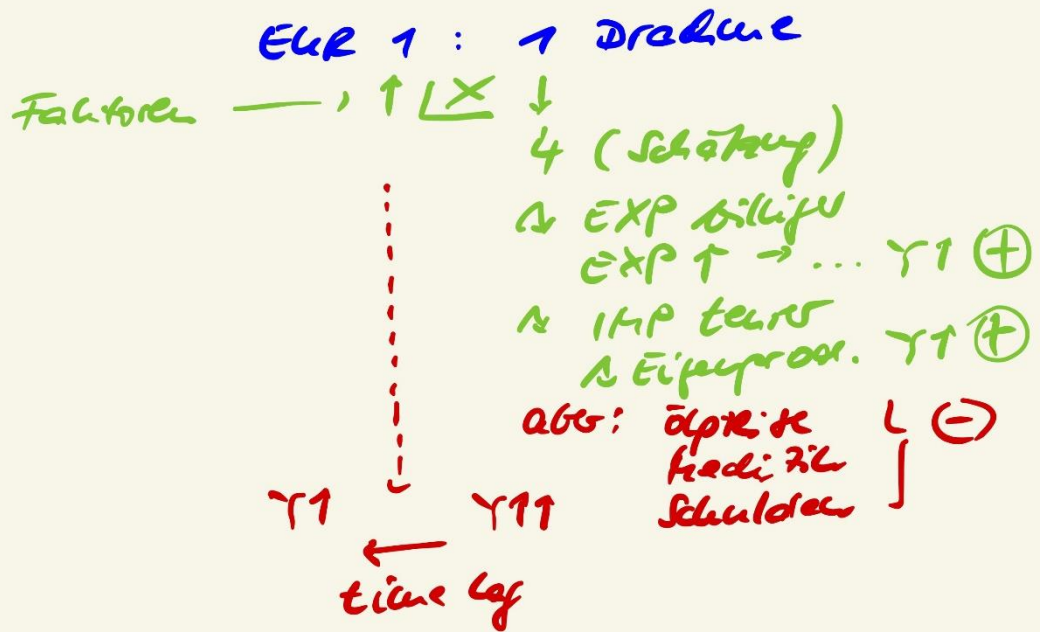 EUR 1 : 1 Drachme
Faktoren → ↑ X ↓
4 (Schätzung)
⇒ EXP billiger
EXP ↑ → ... Y↑ ⊕
⇒ IMP teurer
⇒ Eigenprod. Y↑ ⊕
aber: Ölpreise ⊖
Medizin
Schulden
Y↑ Y↑↑
←
time lag